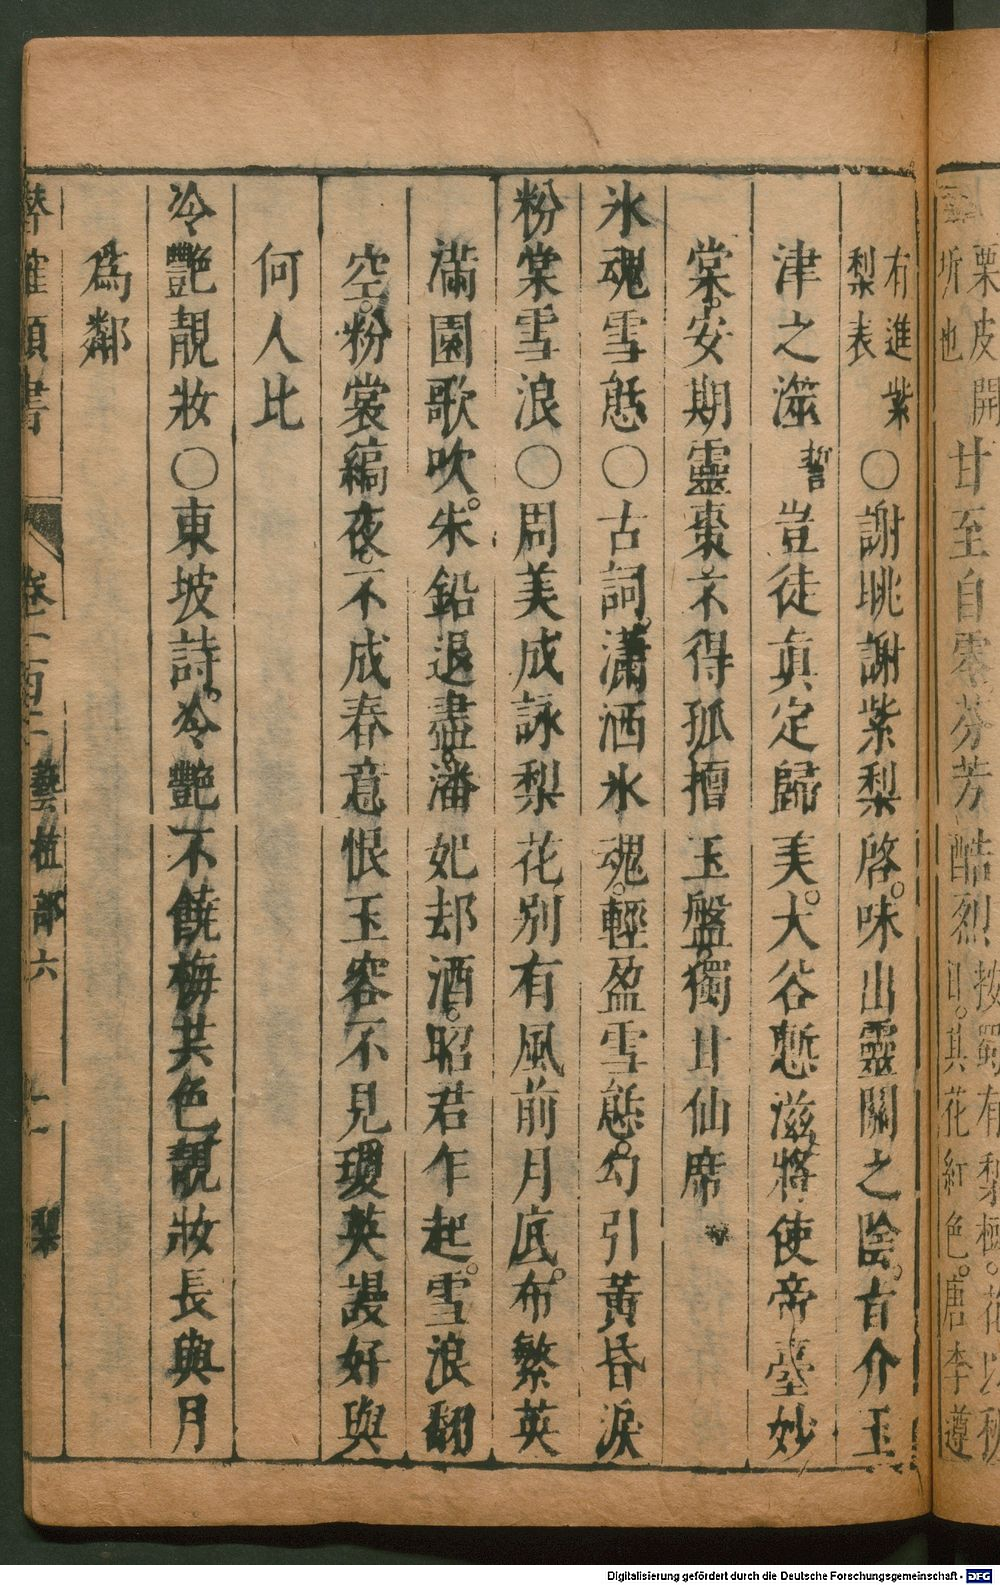 栗皮開
坼也
甘至自零芬芳酷烈
按蜀有梨極。花以秘
口。其花紅色。唐李遵
有進紫
梨表
○謝朓謝紫梨啓。味出靈關之陰。旨介玉
津之澨
誓
豈徒眞定歸美。大谷慙滋。將使帝臺妙
棠。安期靈棗。不得孤擅玉盤。獨甘仙席
氷魂雪態○古詞。瀟洒氷魂。輕盈雪態。勾引黃昏淚
粉棠雪浪○周美成詠梨花別有風前月底。布繁英
滿園歌吹。朱鉛退盡。潘妃却酒。昭君乍起。雪浪翻
空。粉裳縞夜。不成春意恨玉容不見瓊英謾好與
何人比
冷艷靚妝○東坡詩。冷艷不饒梅共色靚妝長與月
爲鄰
類書
卷一百二
藝植部六
梨
Digitalisierung gefördert durch die Deutsche Forschungsgemeinschaft - DFG